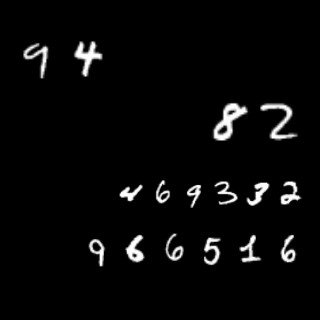 94
82
469332
966516